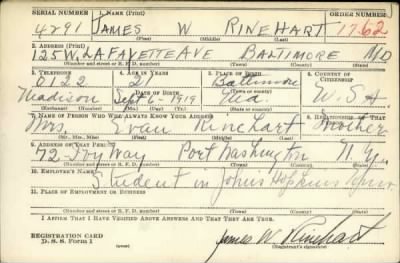 SERIAL NUMBER 1. NAME (Print) ORDER NUMBER
4291 JAMES W RINEHART 1762
(First) (Middle) (Last)
2. ADDRESS (Print)
125 W. LAFAYETTE AVE BALTIMORE MD
(Number and street or R. F. D. number) (Town) (County) (State)
3. TELEPHONE 4. AGE IN YEARS 5. PLACE OF BIRTH 6. COUNTRY OF CITIZENSHIP
0722 21 Baltimore
DATE OF BIRTH (Town or county)
Madison Sept 6 1919 Md. U.S.A.
(Exchange) (Number) (Mo.) (Day) (Yr.) (State or country)
7. NAME OF PERSON WHO WILL ALWAYS KNOW YOUR ADDRESS 8. RELATIONSHIP OF THAT PERSON
Mrs. Evan Rinehart Mother
(Mr., Mrs., Miss) (First) (Middle) (Last)
9. ADDRESS OF THAT PERSON
72 Ivy Way Port Washington N.Y.
(Number and street or R. F. D. number) (Town) (County) (State)
10. EMPLOYER'S NAME
Student in Johns Hopkins Univ
11. PLACE OF EMPLOYMENT OR BUSINESS
(Number and street or R. F. D. number) (Town) (County) (State)
I AFFIRM THAT I HAVE VERIFIED ABOVE ANSWERS AND THAT THEY ARE TRUE.
REGISTRATION CARD
D. S. S. Form 1 James W. Rinehart
(Registrant's signature)